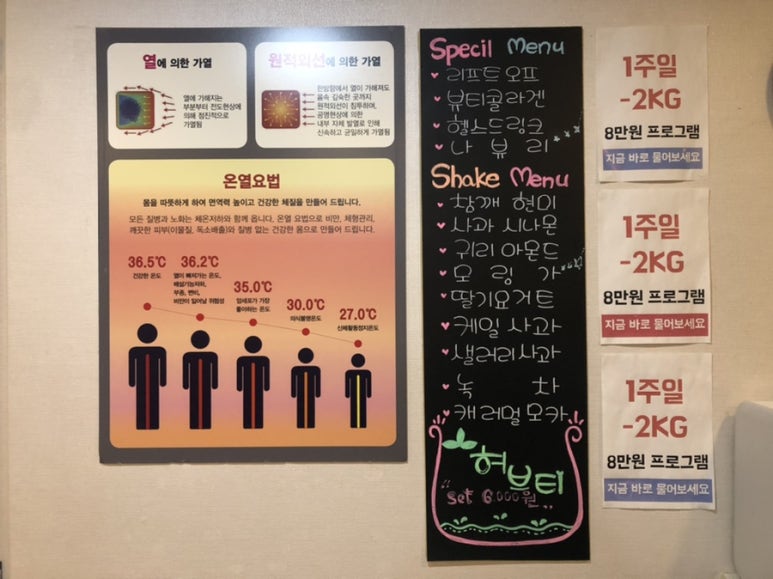 열에 의한 가열
열에 가해지는
부분부터 전도현상에
의해 점진적으로
가열됨
원적외선에 의한 가열
한방향에서 열이 가해져도
몸속 깊숙한 곳까지
원적외선이 침투하며,
공명현상에 의한
내부 자체 발열로 인해
신속하고 균일하게 가열됨
온열요법
몸을 따뜻하게 하여 면역력 높이고 건강한 체질을 만들어 드립니다.
모든 질병과 노화는 체온저하와 함께 옵니다. 온열 요법으로 비만, 체형관리,
깨끗한 피부(이물질, 독소배출)와 질병 없는 건강한 몸으로 만들어 드립니다.
36.5℃
건강한 온도
36.2℃
열이 빠져가는 온도,
배설기능저하,
부종, 변비,
비만이 일어날 위험성
35.0℃
암세포가 가장
좋아하는 온도
30.0℃
의식불명온도
27.0℃
신체활동정지온도
Specil Menu
리프트오프
뷰티콜라겐
헬스드링크
나 뷰 리
Shake Menu
참깨 현미
사과 시나몬
귀리 아몬드
모 링 가
딸기요거트
케일 사과
샐러리사과
녹 차
캐러멜모카
허브티
set 6.000원
1주일
-2KG
8만원 프로그램
지금 바로 물어보세요
1주일
-2KG
8만원 프로그램
지금 바로 물어보세요
1주일
-2KG
8만원 프로그램
지금 바로 물어보세요